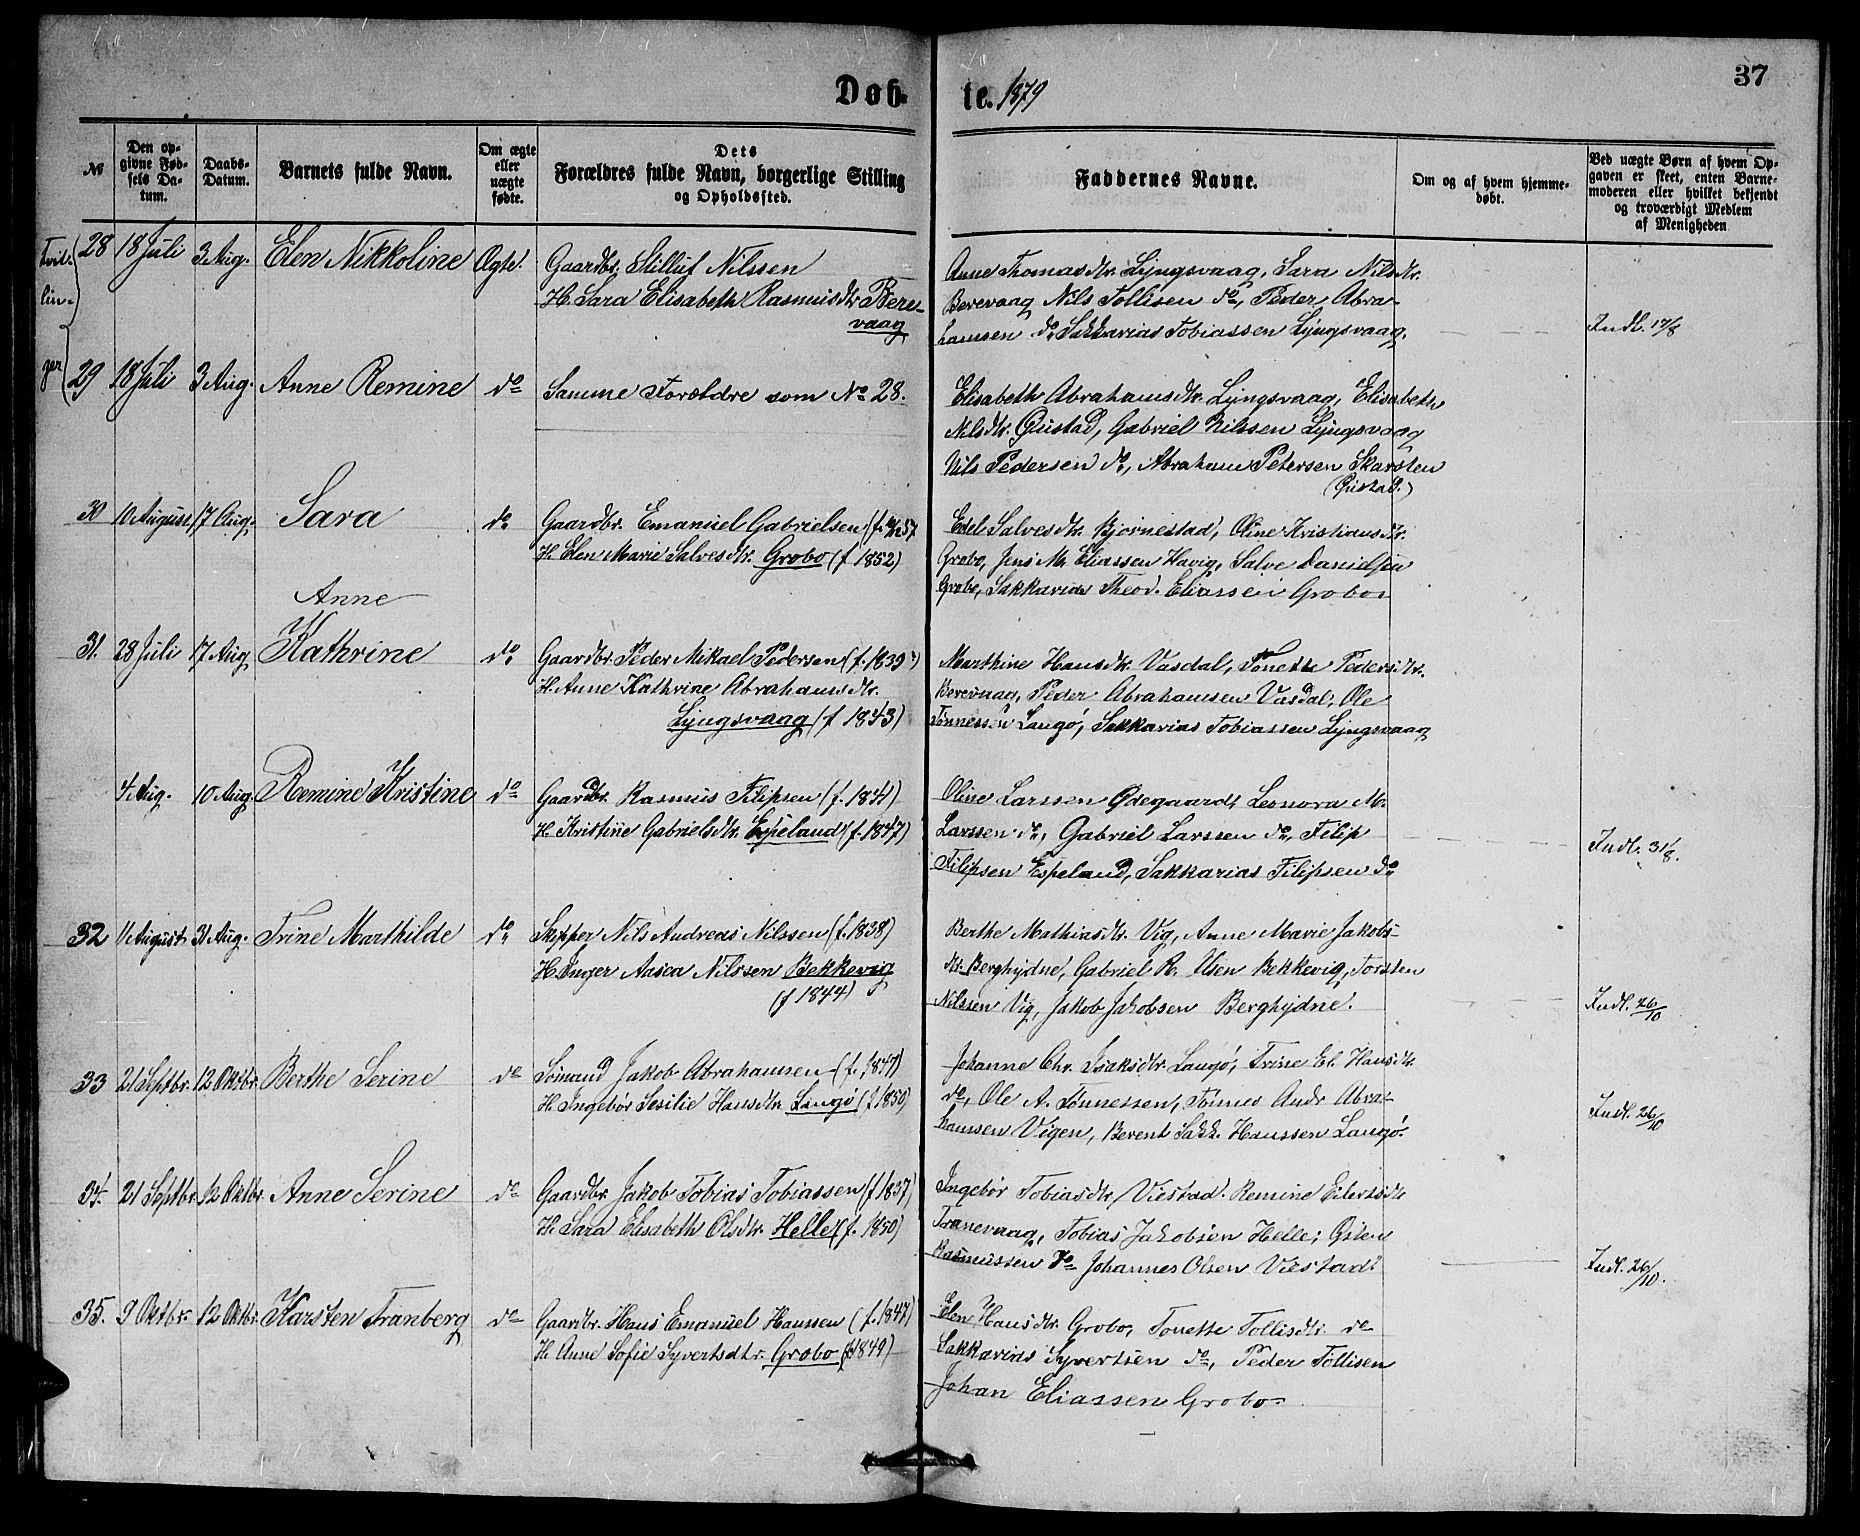 Døb-
te. 1879
37
No
Den op-
givne Fød-
sels Da-
tum.
Daabs-
Datum.
Barnets fulde Navn.
Om ægte
eller
uægte
fødte.
Dets
Forældres fulde Navn, borgerlige Stilling
og Opholdssted.
Faddernes Navne.
Om og af hvem hjemme-
døbt.
Ved uægte Børn af hvem Op-
gaven er skeet, enten Barne-
moderen eller hvilket bekjendt
og troværdigt Medlem
af Menigheden
Tvil-
lin-
ger
28 18 Juli 3 Aug. Elen Nikkoline Ægte. Gaardbr. Stilluf Nilssen
H. Sara Elisabeth Rasmusdtr. Bere-
vaag
Anne Thomasdtr. Lyngsvaag, Sara Nilsdtr.
Berevaag Nils Tollisen do, Peder Abra-
hamsen do Sakkarias Tobiassen Lyngsvaag.
Indl. 17/8
29 18 Juli 3 Aug. Anne Remine do Samme Forældre som No 28.
Elisabeth Abrahamsdtr. Lyngsvaag, Elisabeth
Nilsdtr. Øiestad, Gabriel Nilssen Lyngsvaag
Nils Pedersen do, Abraham Petersen Skarsten
(Øiestad.)
30 10 August 17 Aug. Sara do Gaardbr. Emanuel Gabrielsen (f. 57
H. Elen Marie Salvesdtr. Grobo (f 1852)
Edel Salvesdtr. Bjørnestad, Oline Kristiansdtr.
Grobo, Jens M. Eliassen Havig, Salve Danielsen
Grobo, Sakkarias Theod. Eliassen Grobo.
Anne
31. 28 Juli 17 Aug Kathrine do Gaardbr. Peder Mikael Pedersen (f. 1839)
H. Anne Kathrine Abrahamsdtr.
Lyngsvaag (f 1843)
Marthine Hansdtr. Vasdal, Tonette Pedersdtr.
Berevaag, Peder Abrahamsen Vasdal, Ole
Tønnessen Langø, Sakkarias Tobiassen Lyngsvaag
4. Aug. 10 Aug. Remine Kristine do Gaardbr. Rasmus Filipsen (f. 1841)
H. Kristine Gabrielsdtr. Espeland (f. 1847)
Oline Larssen Ødegaard, Leonora M.
Larssen do, Gabriel Larssen do, Filip
Filipsen Espeland, Sakkarias Filipsen do
Indl. 31/8.
32 11 August 31 Aug. Trine Marthilde do Skipper Nils Andreas Nilssen (f. 1838)
H. Inger Aasea Nilssen Bekkevig
(f 1844)
Berthe Mathiasdtr. Vig, Anne Marie Jakobs-
dtr. Berghydne, Gabriel R. Olsen Bekkevig, Torsten
Nilssen Vig, Jakob Jakobsen Berghydne.
Indl. 26/10
33 21 Septbr. 12 Oktbr. Berthe Serine do Sømand Jakob Abrahamsen (f. 1847)
H. Ingebor Sesilie Hansdtr. Langø (f 1850)
Johanne Chr. Isaksdtr. Langø, Trine El. Hansdtr
do, Ole A. Tønnessen, Tønnes Andr Abra-
hamsen Vigen, Berent Sakk. Hanssen Langø.
Indl. 26/10
34. 21 Septbr. 12 Oktbr. Anne Serine do Gaardbr. Jakob Tobias Tobiassen (f 1837)
H. Sara Elisabeth Olsdtr. Helle (f. 1850)
Ingebor Tobiasdtr. Viestad. Remine Eilertsdtr
Tranevaag, Tobias Jakobsen Helle, Osten
Rasmussen do Johannes Olsen Viestad.
Indl. 26/10.
35. 9 Oktbr. 12 Oktbr. Karsten Tranberg do Gaardbr. Hans Emanuel Hanssen (f. 1847)
H. Anne Sofie Syvertsdtr. Grobo (f 1849)
Elen Hansdtr. Grobo, Tonette Tollisdtr. do
Sakkarias Syvertsen do, Peder Tollisen
Johan Eliassen Grobo.